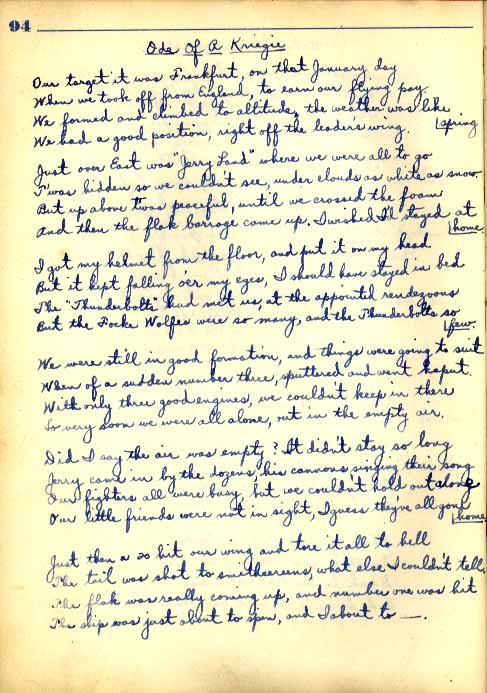 94
Ode Of A Kriegie
Our target it was Frankfurt, on that January day
When we took off from England, to earn our flying pay.
We formed and climbed to altitude, the weather was like
spring
We had a good position, right off the leader's wing.
Just over East was "Jerry Land" where we were all to go
T'was hidden so we couldn't see, under clouds as white as snow.
But up above twas peaceful, until we crossed the foam
And then the flak barrage came up. I wished I'd stayed at
home.
I got my helmet from the floor, and put it on my head
But it kept falling o'er my eyes, I should have stayed in bed
The "Thunderbolts" had met us, at the appointed rendezvous
But the Focke Wolfes were so many, and the Thunderbolts so
few.
We were still in good formation, and things were going to suit
When of a sudden number three, sputtered and went kaput.
With only three good engines, we couldn't keep in there
So very soon we were all alone, out in the empty air.
Did I say the air was empty? It didn't stay so long
Jerry came in by the dozens, his cannons singing their song
Our fighters all were busy, but we couldn't hold out alone
Our little friends were not in sight, I guess they've all gone
home
Just then a 20 hit our wing and tore it all to hell
The tail was shot to smithereens, what else I couldn't tell.
The flak was really coming up, and number one was hit
The ship was just about to spin, and I about to —.